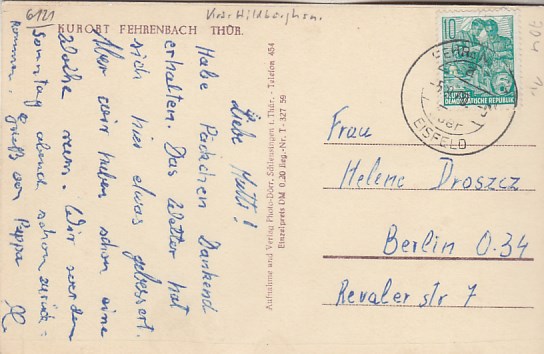 6121
KURORT FEHRENBACH THÜR.
Kreis Hildburghsn.
Liebe Mutti!
Habe Päckchen Dankend
erhalten. Das Wetter hat
sich hier etwas gebessert.
Aber wir haben schon eine
Woche rum. Wir werden
Sonntag abend schon zurück-
kommen. Gruß von Pappa
Aufnahme und Verlag Photo-Dörr, Schleusingen i. Thür. - Telefon 454
Einzelpreis DM 0,20 Reg.-Nr. T - 327 59
10
DEUTSCHE
DEMOKRATISCHE REPUBLIK
FEHRENBACH
über
EISFELD
Frau
Helene Droszcz
Berlin O.34
Revaler str 7